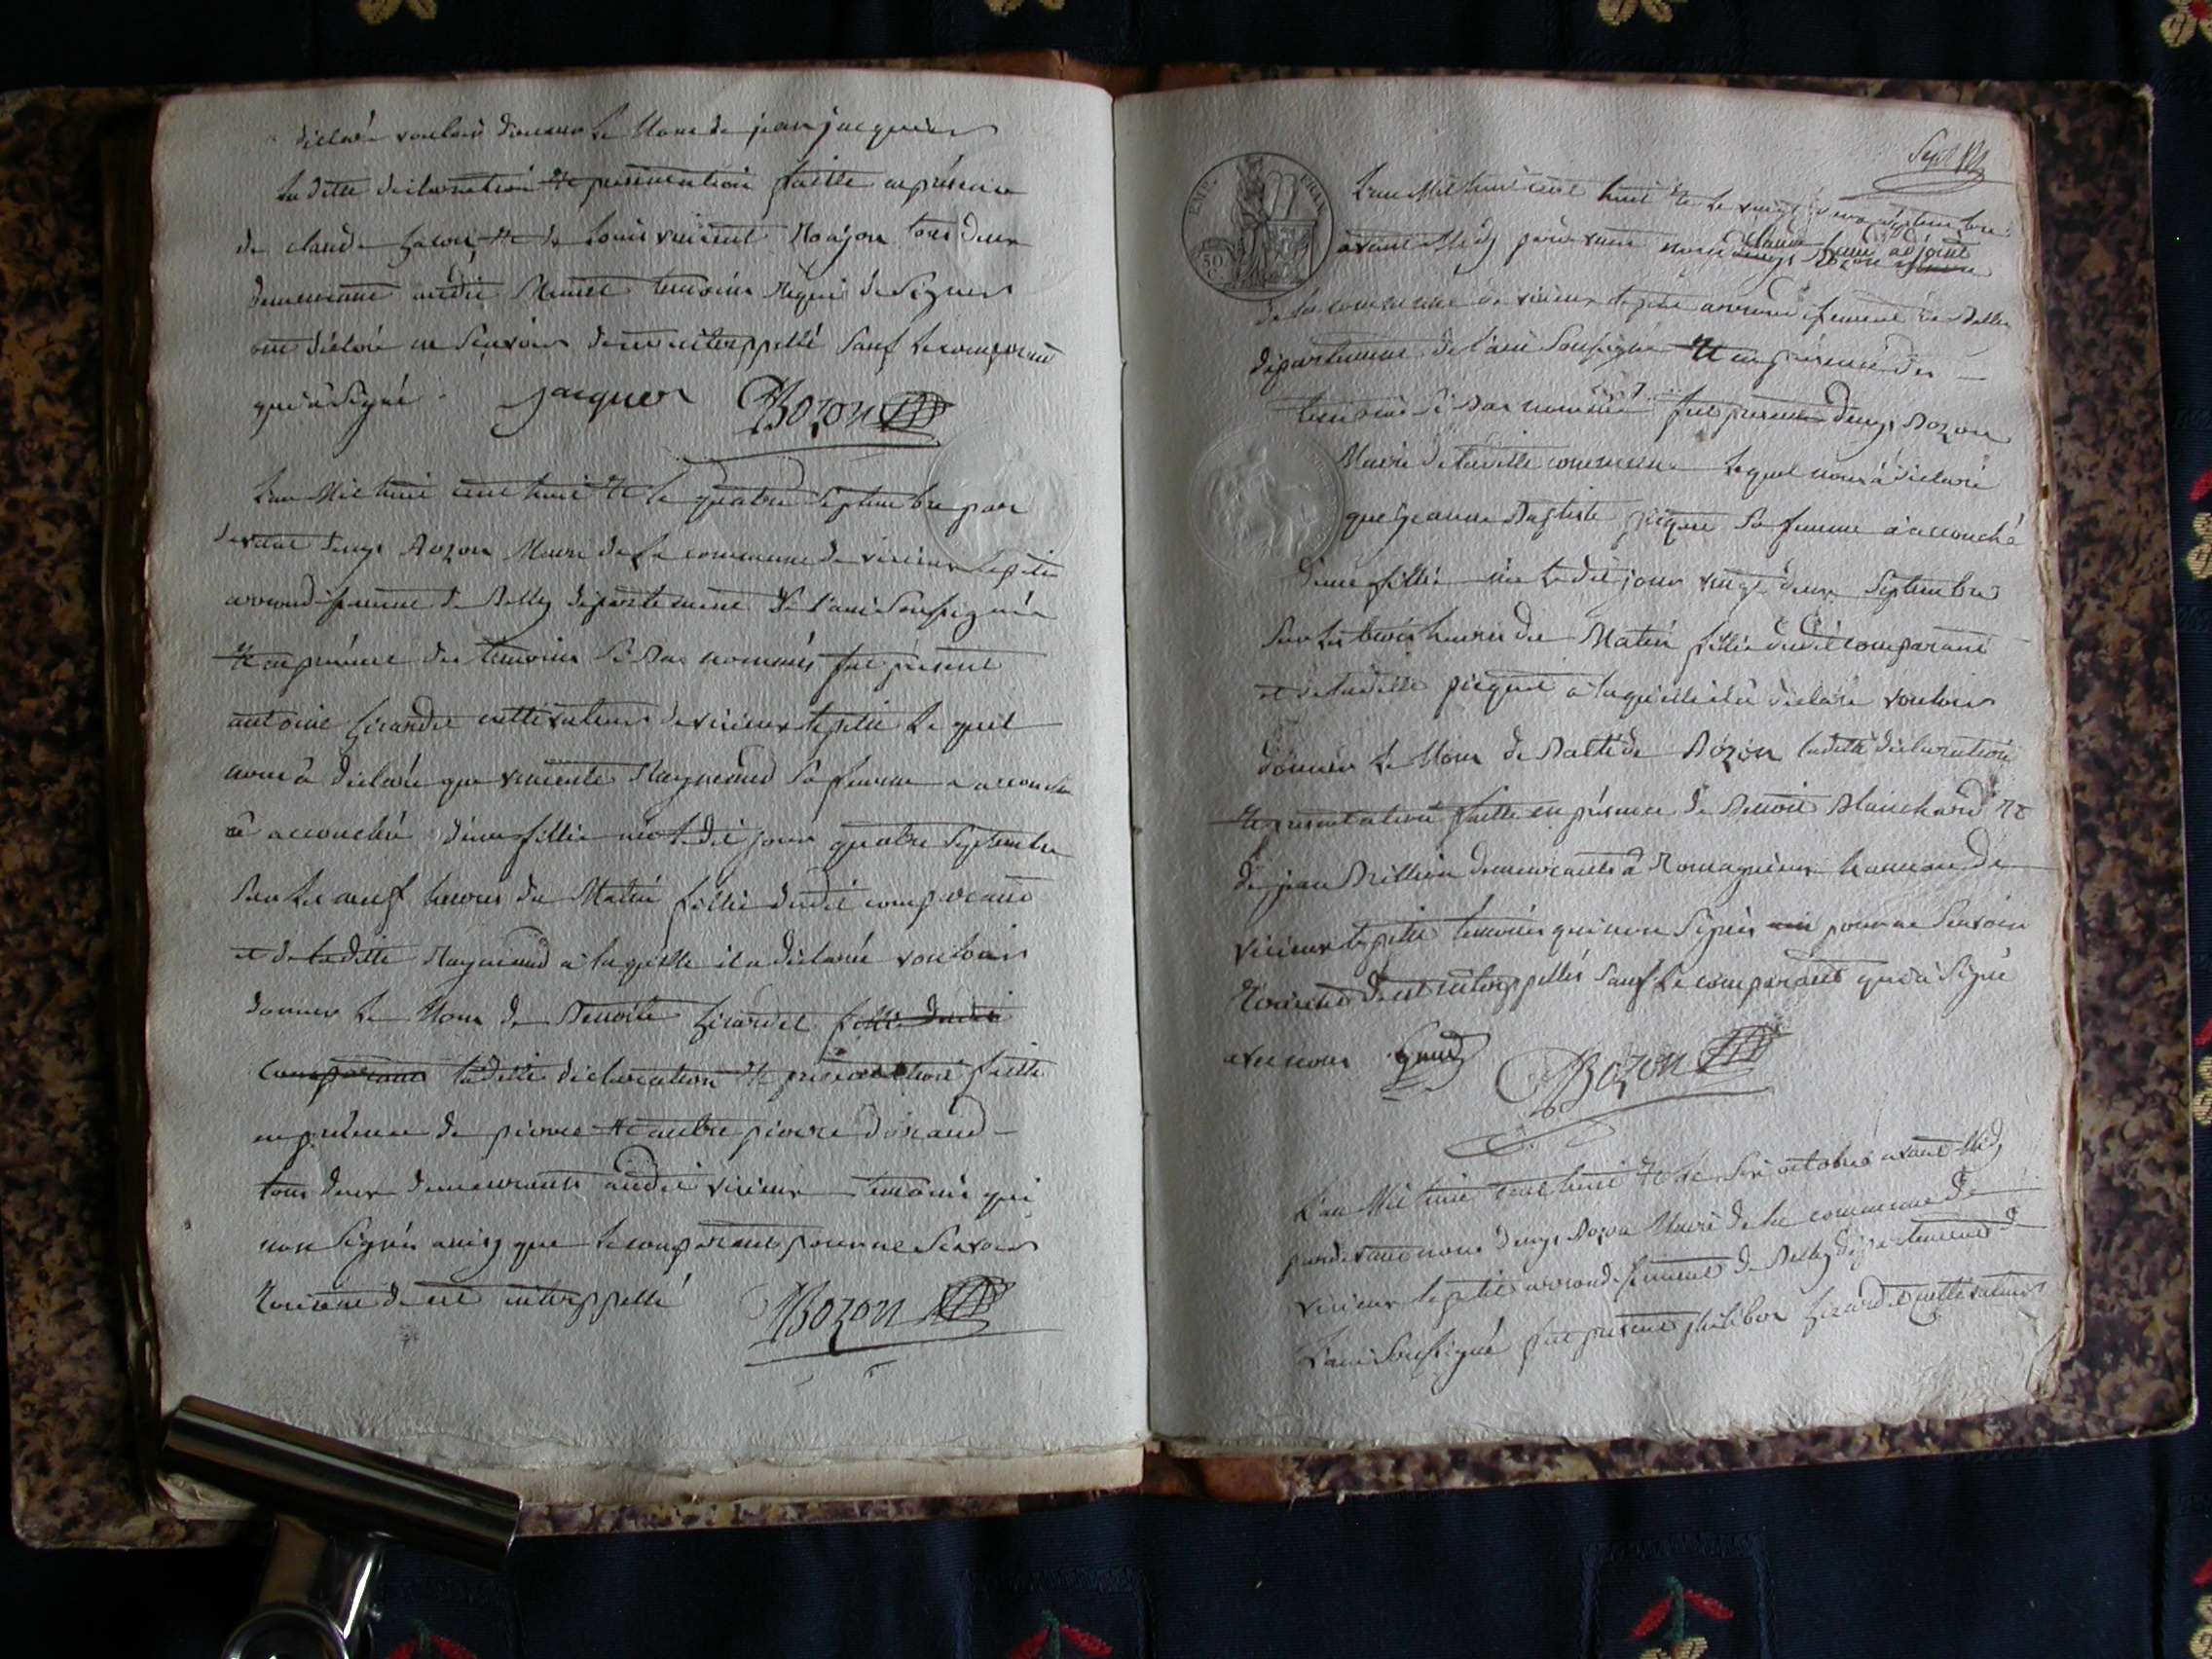 déclaré vouloir donner le Nom de jean jacquier
la ditte déclaration et présentation faitte en présence
de claude et de louis vincent tous deux
demeurant audit témoins Réqui de Signer
ont déclaré ne Sçavoir de ce interppellé Sauf le comparant
qui a Signé . jacquer DBozon
L'an Mil huit cent huit et le quatre Septembre par
devant denys Bozon Maire de la commune de virieux le petit
arrondissement de Belley département de l'ain Soussigné
et en présence des témoins Si Bas nommés fut présent
antoine Girardet cultivateur de virieux le petit Le quel
nous à déclaré que vincente Reymond Sa femme a accouché
à accouché d'une fillie née ledit jour quatre Septembre
Sur les neuf heures du Matin fillie dudit comparant
et de laditte Reymond a laquelle il a déclaré vouloir
donner le Nom de Benoite Girardet fillie dudit
comparant laditte déclaration et présentation faitte
en présence de pierre et autre pierre durand
tous deux demeurants audit virieux témoins qui
non Signés ainsy que le comparant pour ne Sçavoir
de ce interppellé DBozon
Sept
EMP. FRAN.
50 C.
L'an Mil huit cent huit et le vingt deux Septembre
avant Midy par devant nous denys Bozon Maire
claude adjoint
de la commune de virieux le petit arrondissement de Belley
département de l'ain Soussigné et en présence des
témoins Si Bas nommés fut présent denys Bozon
Maire de laditte commune Lequel nous à déclaré
que jeanne Baptiste picquet Sa femme à accouché
d'une fillie née ledit jour vingt deux Septembre
Sur les trois heures du Matin fillie dudit comparant
et de laditte picquet à laquelle il a déclaré vouloir
donner le Nom de Baltide Bozon laditte déclaration
et présentation faitte en présence de Benoit Blanchard et
de jean Billion demeurants à Romagnieux hameau de
virieux le petit témoins qui non Signés pour ne Sçavoir
de ce interppellés Sauf le comparant qui a Signé
avec nous DBozon
L'an Mil huit cent huit et le Six octobre avant Midy
pardevant nous denys Bozon Maire de la commune de
virieux le petit arrondissement de Belley département de
L'ain Soussigné fut présent philibert Girardet cultivateur